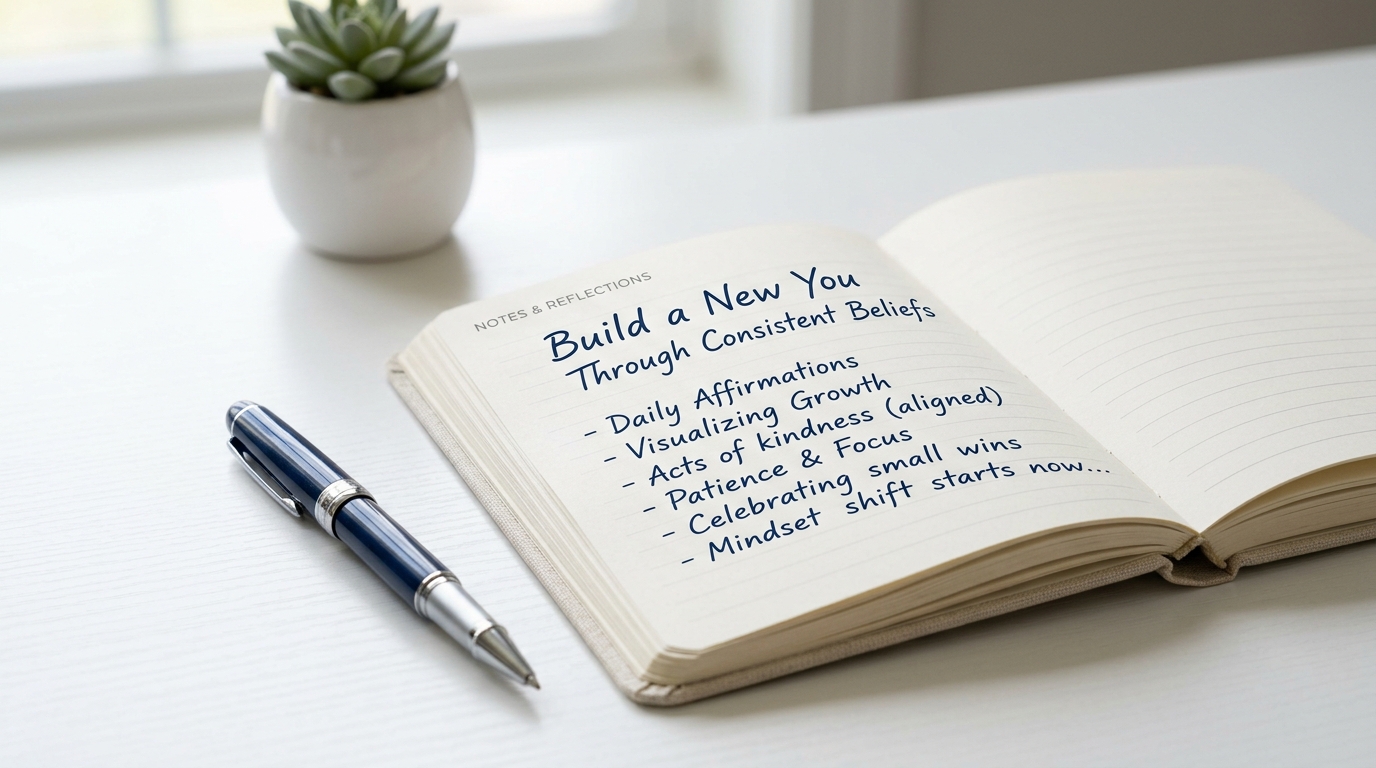 NOTES & REFLECTIONS
Build a New You
Through Consistent Beliefs
- Daily Affirmations
- Visualizing Growth
- Acts of kindness (aligned)
- Patience & Focus
- Celebrating small wins
- Mindset shift starts now...